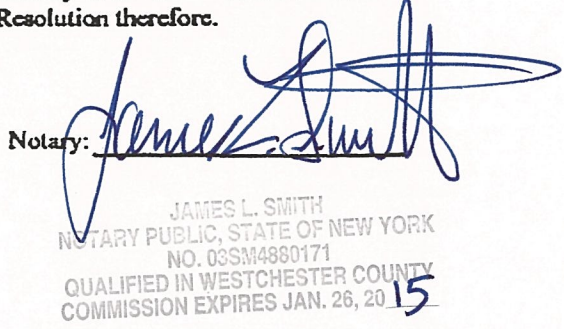 Resolution therefore.
Notary: James L. Smith
JAMES L. SMITH
NOTARY PUBLIC, STATE OF NEW YORK
NO. 03SM4880171
QUALIFIED IN WESTCHESTER COUNTY
COMMISSION EXPIRES JAN. 26, 2015